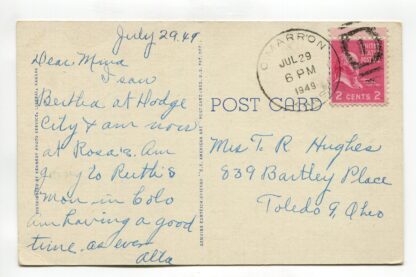 July 29.49
Dear Mina
I saw
Bertha at Hodge
City & am now
at Rosa's. Am
going to Ruth's
Mon. in Colo
am having a good
time. as ever
alta
POST CARD
CIMARRON
JUL 29
6 PM
1949
2 CENTS 2
Mrs T. R Hughes
839 Bartley Place
Toledo 9, Ohio